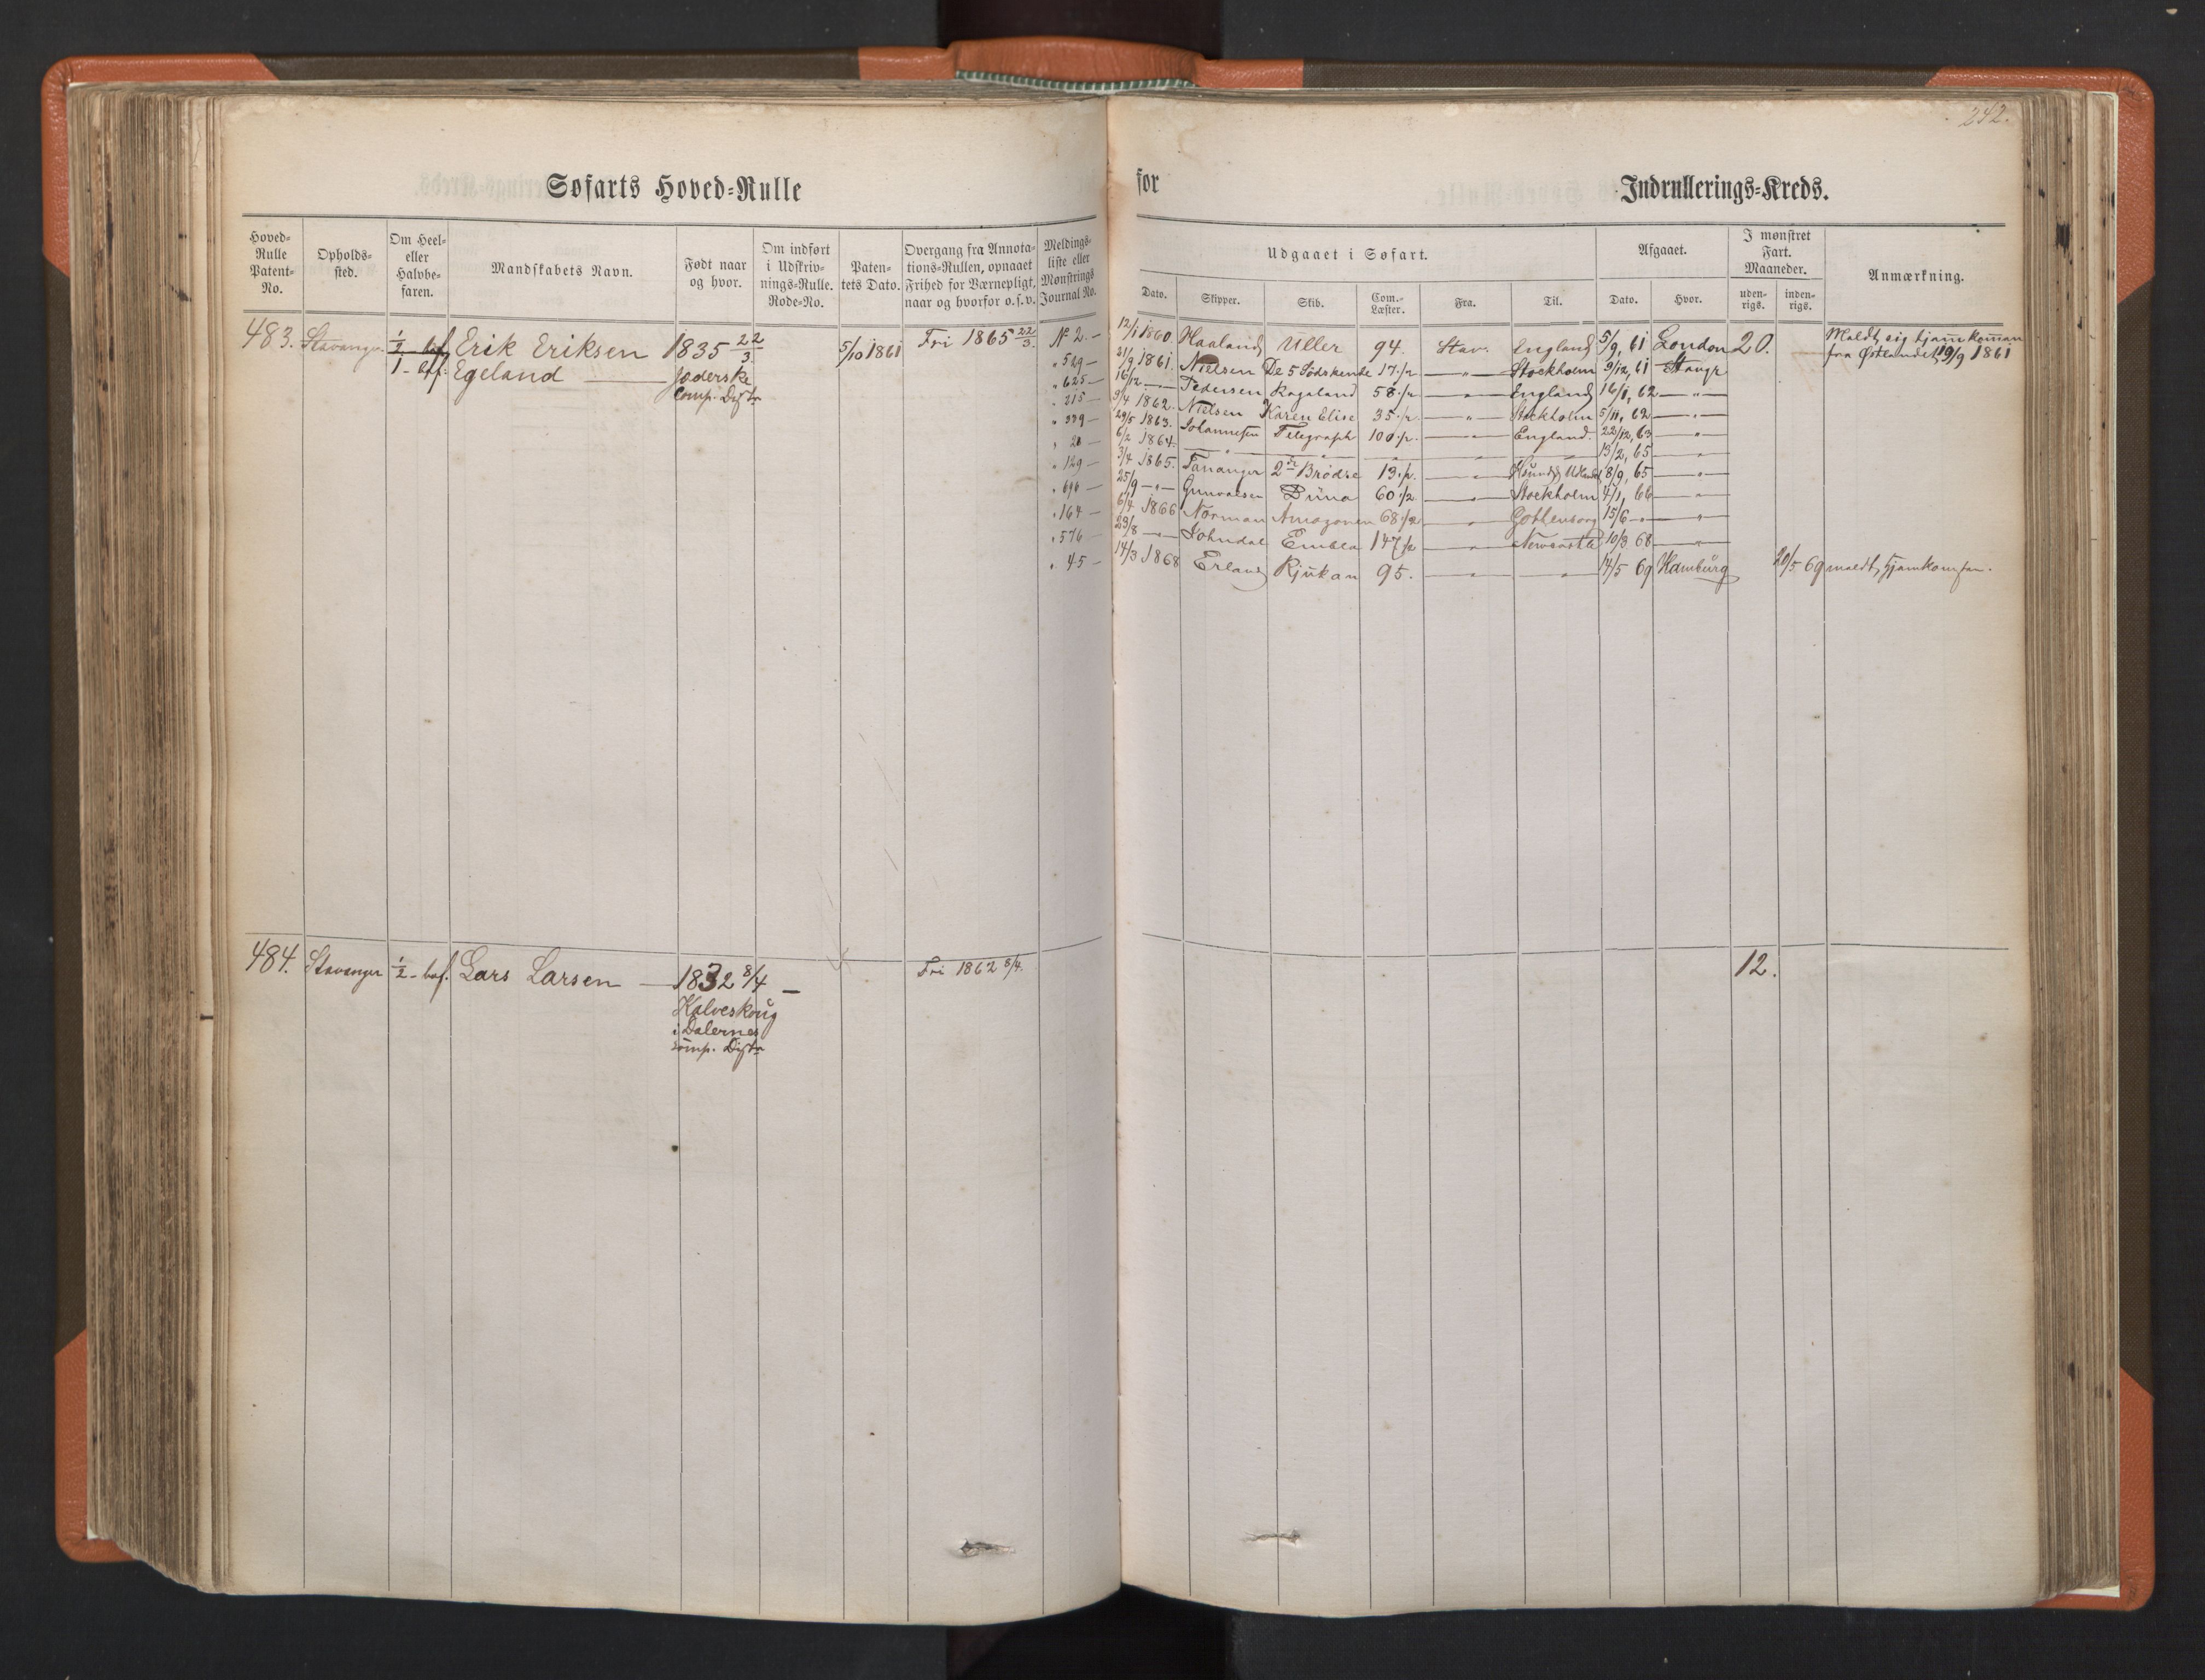 242.
Søfarts Hoved-Rulle for Indrullerings-Kreds.
Hoved-Rulle Patent-No.
Opholds-sted.
Om Heel- eller Halvbe-faren.
Mandskabets Navn.
Født naar og hvor.
Om indført i Udskriv-nings-Rulle. Rode-No.
Paten-tets Dato.
Overgang fra Annota-tions-Rullen, opnaaet Frihed for Værnepligt, naar og hvorfor o.s.v.
Meldings-liste eller Mønstrings Journal No.
Udgaaet i Søfart.
Dato. Skipper. Skib. Com.-Læster. Fra. Til.
Afgaaet.
Dato. Hvor.
I mønstret Fart. Maaneder.
uden-rigs. inden-rigs.
Anmærkning.
483. Stavanger ½ bef. Erik Eriksen 1835 22/3 5/10 1861 Fri 1865 22/3.
1 bef. Egeland Jæderske
Comp. Distr
№ 2. 12/1 1860. Haaland Uller 94. Stav. England 5/9, 61 London 20. Meldt sig hjemkommen
fra Østlandet 19/9 1861
" 529 21/9 1861. Nielsen De 5 Södskende 17 ½ " Stockholm 9/12, 61 Stavgr
" 625 16/12 " Pedersen Rogaland 58 ½ " England 16/1, 62 "
" 215 3/4 1862. Nielsen Karen Elise 35 ½ " Stockholm 5/11, 62 "
" 339 29/5 1863. Johannesen Telegraph 100 ½ " England. 22/12, 63 "
" 20 6/2 1864. " " " " " 13/2, 65 "
" 129 3/4 1865. Tananger 2de Brødre 13 ½ " 8/9, 65 "
" 696 25/9 " Gunvalsen Buna 60 ½ " Stockholm 4/1, 66 "
" 164 6/4 1866 Norman Amazonen 68 ½ " Gothenborg 15/6 " "
" 576 23/8 " Johndal Embla 147 ½ " Newcastle 10/3 68 "
" 45 14/3 1868 Erland Rjukan 95. " " 14/5 69 Hamburg 20/5 69 meldt hjemkommen.
484. Stavanger ½ bef. Lars Larsen 1832 8/4 Fri 1862 8/4. 12.
Kalveskoug
i Dalernes
Comp. Distr